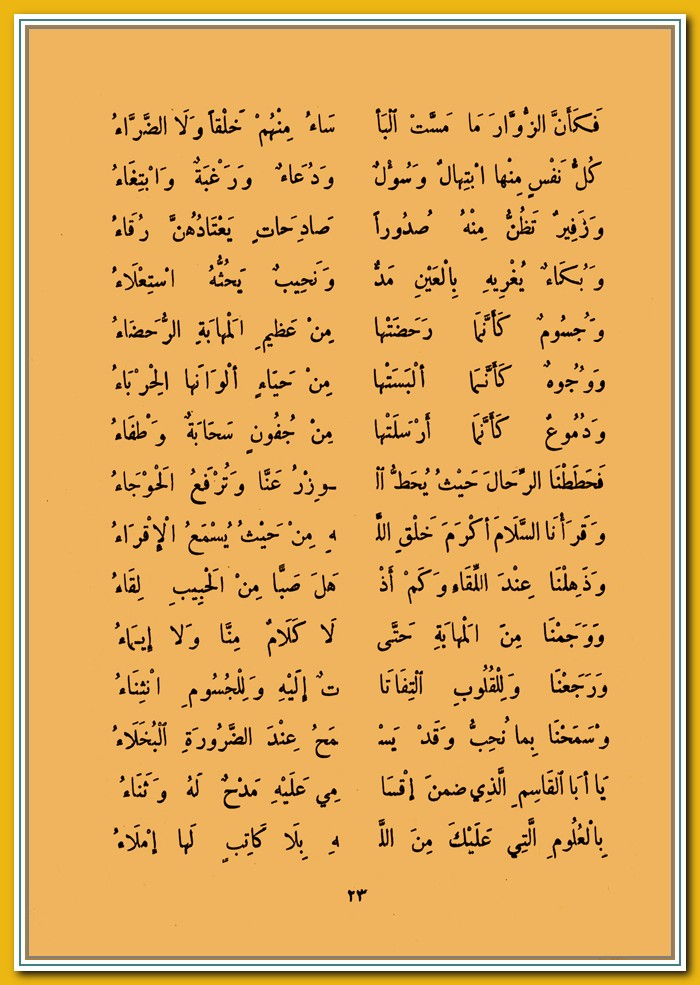 فَكَأَنَّ الزُّوَّارَ مَا مَسَّتْ ٱلْبَأْ سَاءُ مِنْهُمْ خَلْقاً وَلَا الضَّرَّاءُ
كُلُّ نَفْسٍ مِنْها ابْتِهالٌ وَسُوْلٌ وَدُعَاءٌ وَرَغْبَةٌ وَابْتِغَاءُ
وَزَفِيرٌ تَظُنُّ مِنْهُ صُدُوراً صَادِحَاتٍ يَعْتَادُهُنَّ زُقَاءُ
وَبُكَاءٌ يُغْرِيهِ بِالْعَيْنِ مَدٌّ وَنَحِيبٌ يَحُثُّهُ اسْتِعْلَاءُ
وَجُسُومٌ كَأَنَّمَا رَحَضَتْها مِنْ عَظِيمِ المَهابَةِ الرُّحَضَاءُ
وَوُجُوهٌ كَأَنَّمَا ألْبَسَتْها مِنْ حَيَاءٍ ألْوَانَها الحِرْبَاءُ
وَدُمُوعٌ كَأَنَّمَا أَرْسَلَتْها مِنْ جُفُونٍ سَحَابَةٌ وَطْفَاءُ
فَحَطَطْنَا الرِّحَالَ حَيْثُ يُحَطُّ الْ ـوِزْرُ عَنَّا وَتُرْفَعُ الحَوْجَاءُ
وَقَرَأْنَا السَّلَامَ أكْرَمَ خَلْقِ اللَّـ ـهِ مِنْ حَيْثُ يُسْمَعُ الْإِقْرَاءُ
وَذَهِلْنَا عِنْدَ اللِّقَاءِ وَكَمْ أَذْ هَلَ صَبًّا مِنْ الحَبِيبِ لِقَاءُ
وَوَجَمْنَا مِنَ المَهابَةِ حَتَّى لَا كَلَامٌ مِنَّا وَلا إِيمَاءُ
وَرَجَعْنَا وَلِلْقُلُوبِ ٱلْتِفَاتَا تٌ إِلَيْهِ وَلِلْجُسُومِ انْثِنَاءُ
وَسَمَحْنَا بِما نُحِبُّ وَقَدْ يَسْـ ـمَحُ عِنْدَ الضَّرُورَةِ ٱلْبُخَلَاءُ
يَا أبَا ٱلقَاسِمِ الَّذِي ضمنَ إقْسَا مِي عَلَيْهِ مَدْحٌ لَهُ وَثَنَاءُ
بِالْعُلُومِ الَّتِي عَلَيْكَ مِنَ اللَّـ ـهِ بِلَا كَاتِبٍ لَها إمْلَاءُ
٢٣